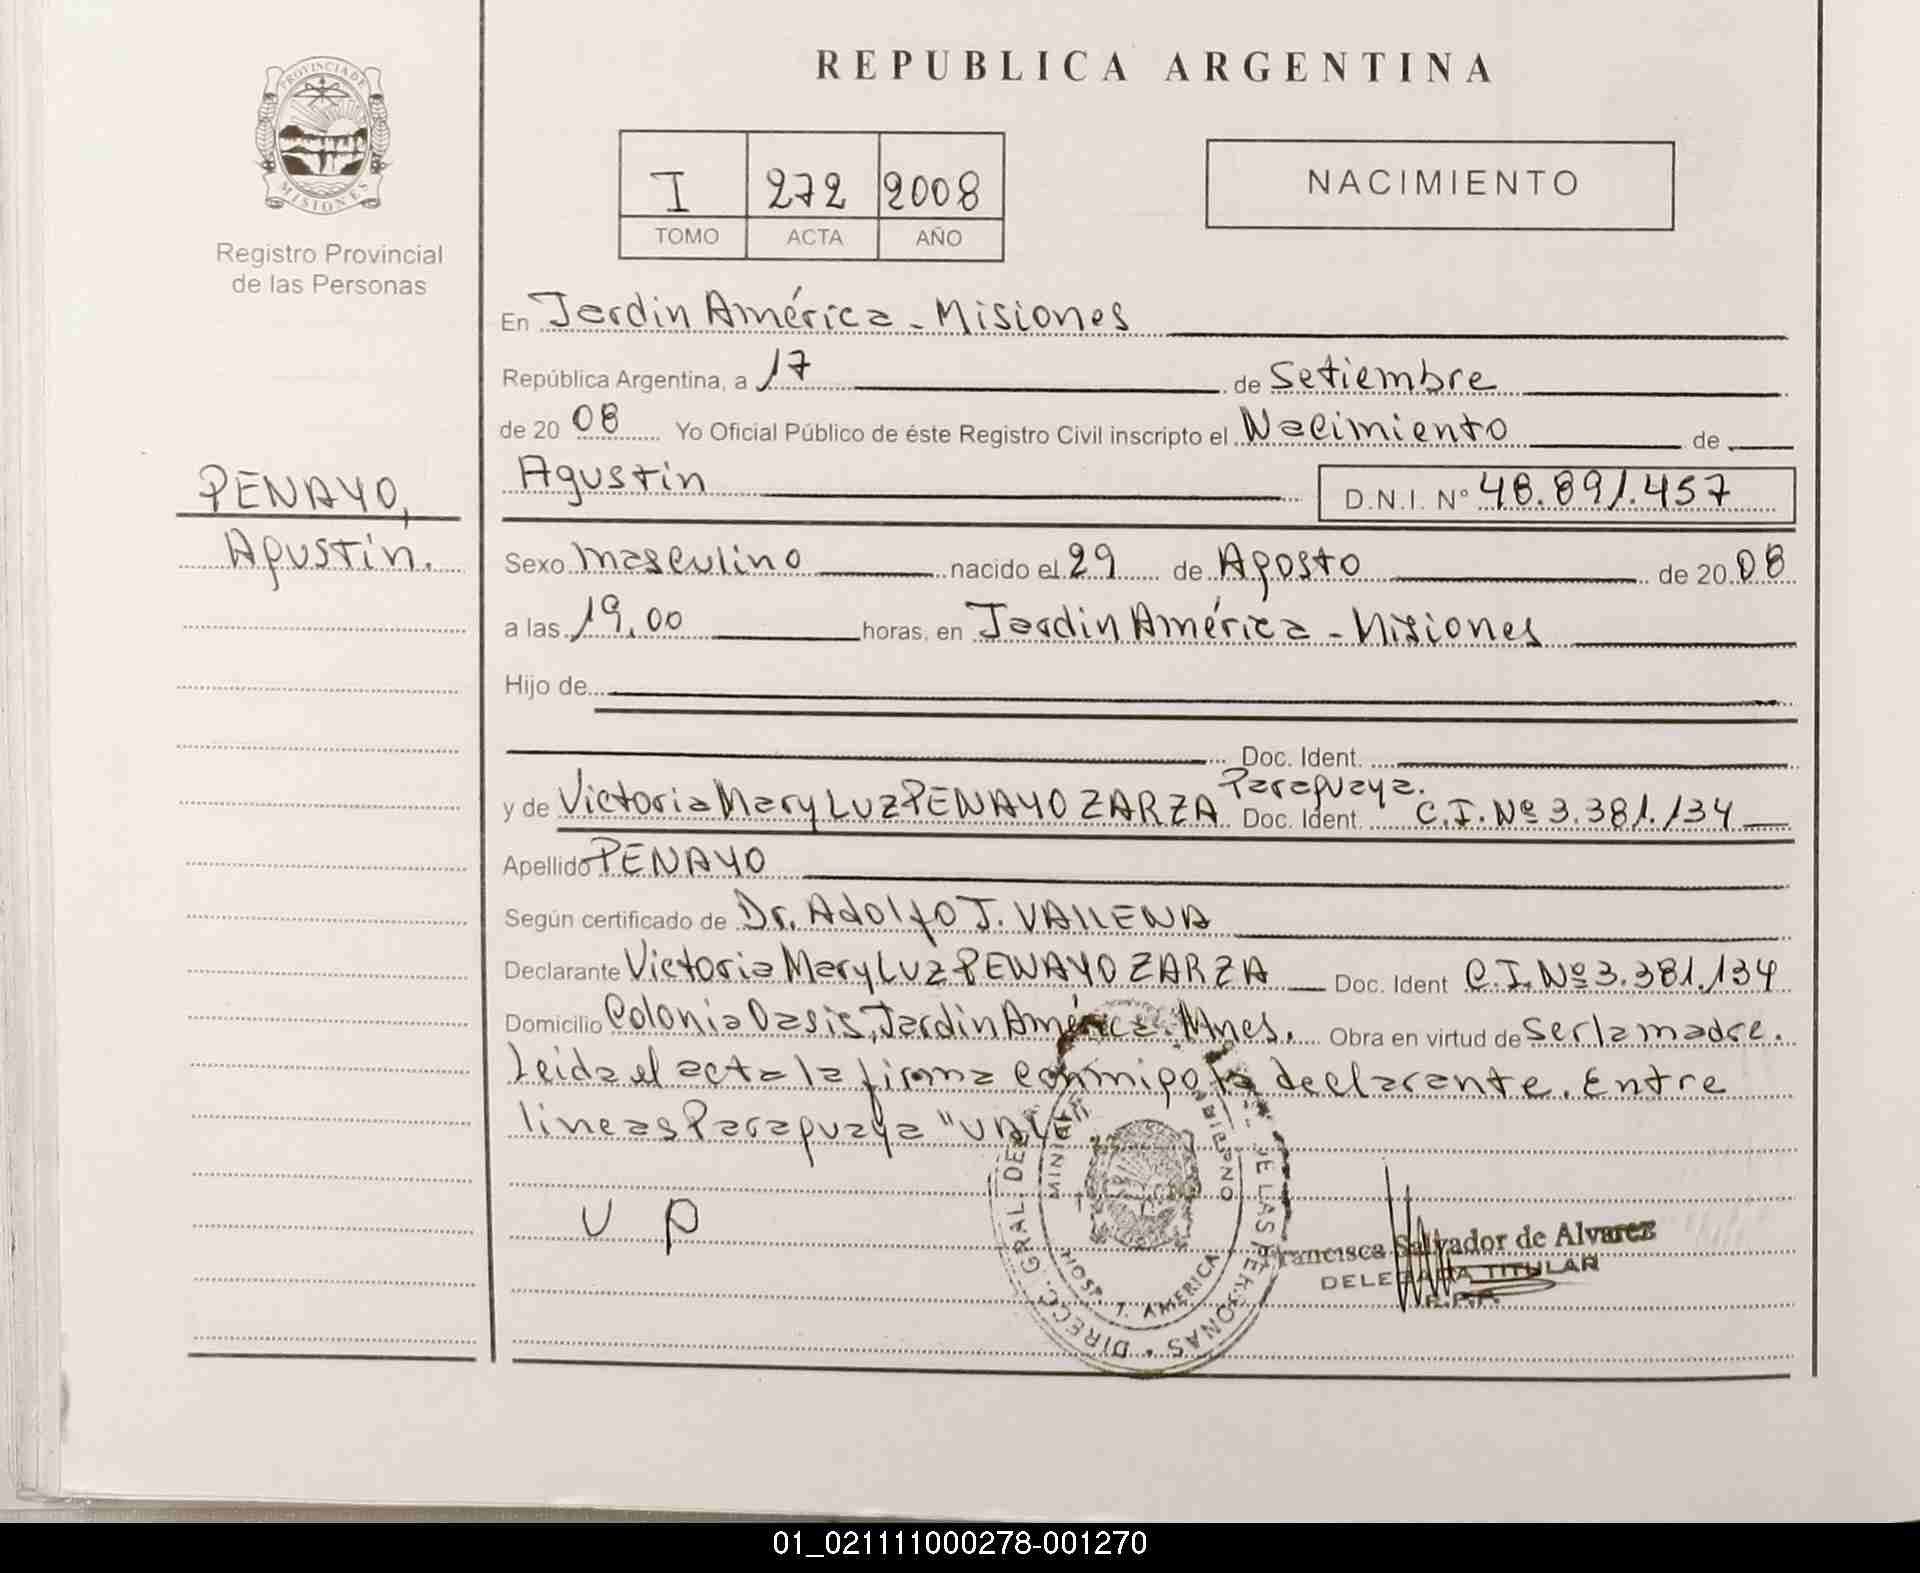 PROVINCIA DE
MISIONES
Registro Provincial
de las Personas
PENAYO,
Agustin.
REPUBLICA ARGENTINA
I 272 2008
TOMO ACTA AÑO
NACIMIENTO
En Jardin América - Misiones
República Argentina, a 17 de Setiembre
de 20 08 Yo Oficial Público de éste Registro Civil inscripto el Nacimiento de
Agustin D.N.I. Nº 48.891.457
Sexo masculino nacido el 29 de Agosto de 20 08
a las 19,00 horas, en Jardin América - Misiones
Hijo de
Doc. Ident.
Paraguaya.
y de Victoria Mary LUZ PENAYO ZARZA Doc. Ident. C.I. Nº 3.381.134
Apellido PENAYO
Según certificado de Dr. Adolfo J. VALLENA
Declarante Victoria Mary LUZ PENAYO ZARZA Doc. Ident C.I. Nº 3.381.134
Domicilio Colonia Oasis, Jardin América. Mnes. Obra en virtud de Ser la madre.
Leida el acta la firma conmigo la declarante. Entre
lineas Paraguaya "VALE".
V P
DIRECC. GRAL. DE LAS PERSONAS
HOSP. J. AMERICA
Francisca Salvador de Alvarez
DELEGADA TITULAR
R.P.P.
01_021111000278-001270